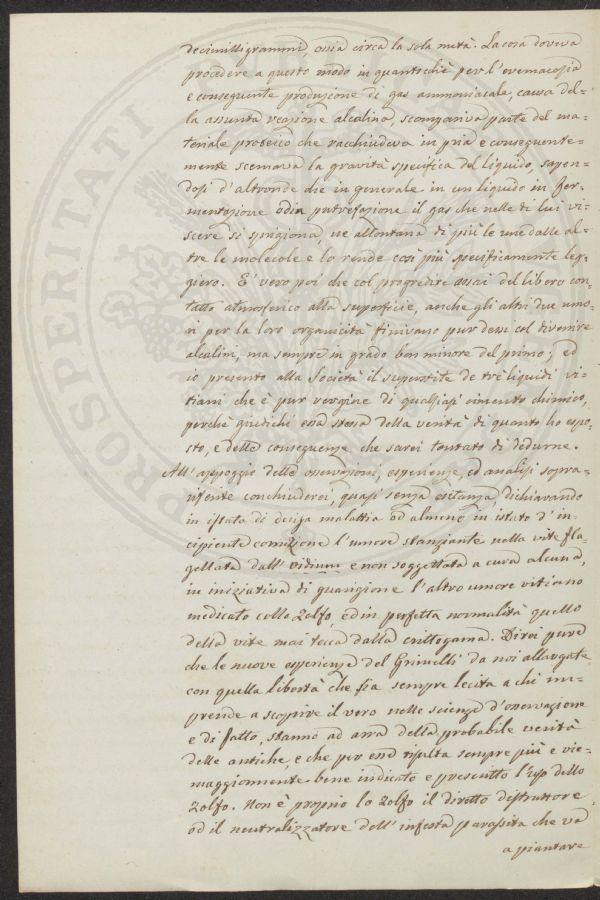 decimilligrammi ossia circa la sola metà. La cosa doveva
procedere a questo modo in quantichè per l'eremacosia
e conseguente produzione di gas ammoniacale, causa del=
la assunta reazione alcalina scompariva parte del ma=
teriale proteico che racchiudeva in pria e conseguente=
mente scemava la gravità specifica del liquido, sapen=
dosi d'altronde che in generale in un liquido in fer=
mentazione od in putrefazione il gas che nelle di lui vi=
scere si sprigiona, ne allontana di più le une dalle al=
tre le molecole e lo rende così più specificamente leg=
giero. E' vero poi che col progredire assai del libero con=
tatto atmosferico alla superficie, anche gli altri due umo=
ri per la loro organicità finivano pur dessi col divenire
alcalini, ma sempre in grado ben minore del primo; ed
io presento alla Società il superstite de' tre liquidi vi=
tiami che è pur vergine di qualsiasi cimento chimico,
perchè giudichi essa stessa della verità di quanto ho espo=
sto, e delle conseguenze che sarei tentato di dedurne.
All'appoggio delle osservazioni, esperienze, ed analisi sopra=
riferite conchiuderei, quasi senza esitanza, dichiarando
in istato di decisa malattia od almeno in istato d'in=
cipiente comizione l'umore stanziante nella vite fla=
gellata dall'oidium e non soggettata a cura alcuna,
in iniziativa di guarigione l'altro umore vitiano
medicato collo Zolfo, ed in perfetta normalità quello
della vite mai tocca dalla crittogama. Direi pure
che le nuove esperienze del Grimelli da noi allargate
con quella libertà che sia sempre lecita a chi im=
prende a scoprire il vero nelle scienze d'osservazione
e di fatto, stanno ad arra della probabile verità
delle antiche, e che per essa risulta sempre più e vie=
maggiormente bene indicato e prescritto l'uso dello
Zolfo. Non è proprio lo Zolfo il diretto distruttore
od il neutralizzatore dell'infesta parassita che va
a piantare
PROSPERITATI